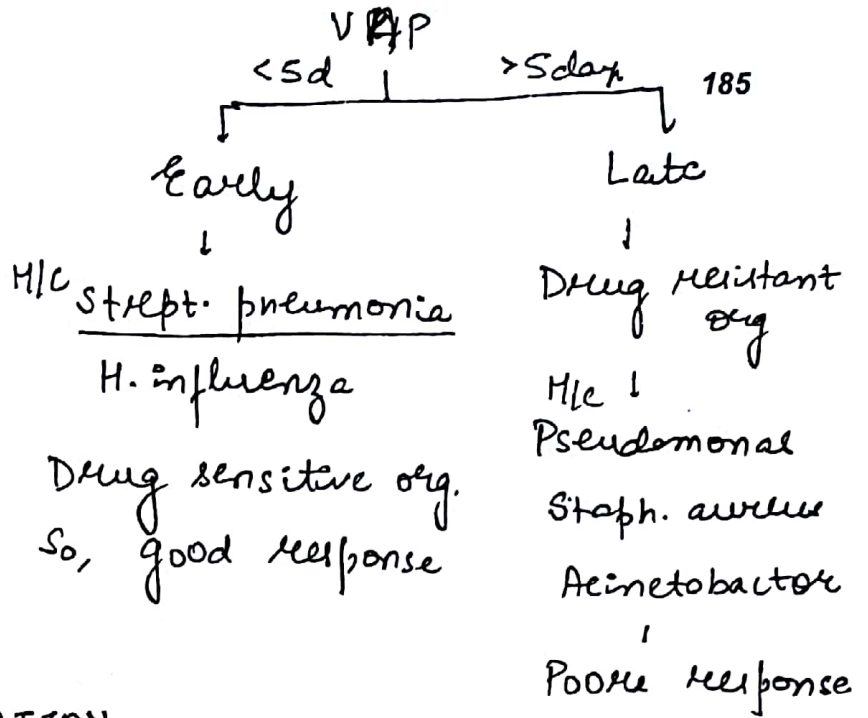 VAP
<5d >5days 185
Early
Late
↓
↓
M/C Strept. pneumonia
H. influenza
Drug sensitive org.
So, good response
Drug resistant
org
M/C ↓
Pseudomonas
Staph. aureus
Acinetobactor
Poore response
ATION